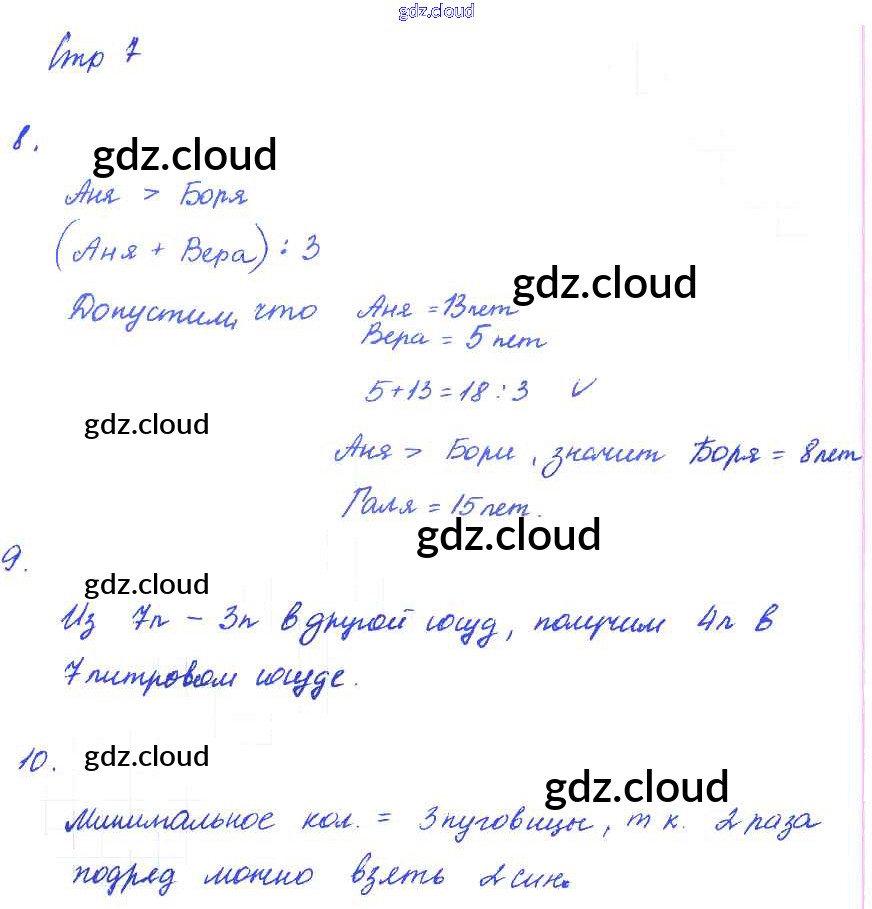 gdz.cloud
Стр 7
8.
gdz.cloud
Аня > Боря
(Аня + Вера) : 3
gdz.cloud
Допустим, что Аня = 13 лет
Вера = 5 лет
5+13=18:3 ✓
gdz.cloud
Аня > Бори, значит Боря = 8 лет
Галя = 15 лет.
gdz.cloud
9.
gdz.cloud
Из 7л - 3л в другой сосуд, получим 4л в
7 литровом сосуде.
10.
gdz.cloud
gdz.cloud
Минимальное кол. = 3 пуговицы, т к. 2 раза
подряд можно взять 2 син.